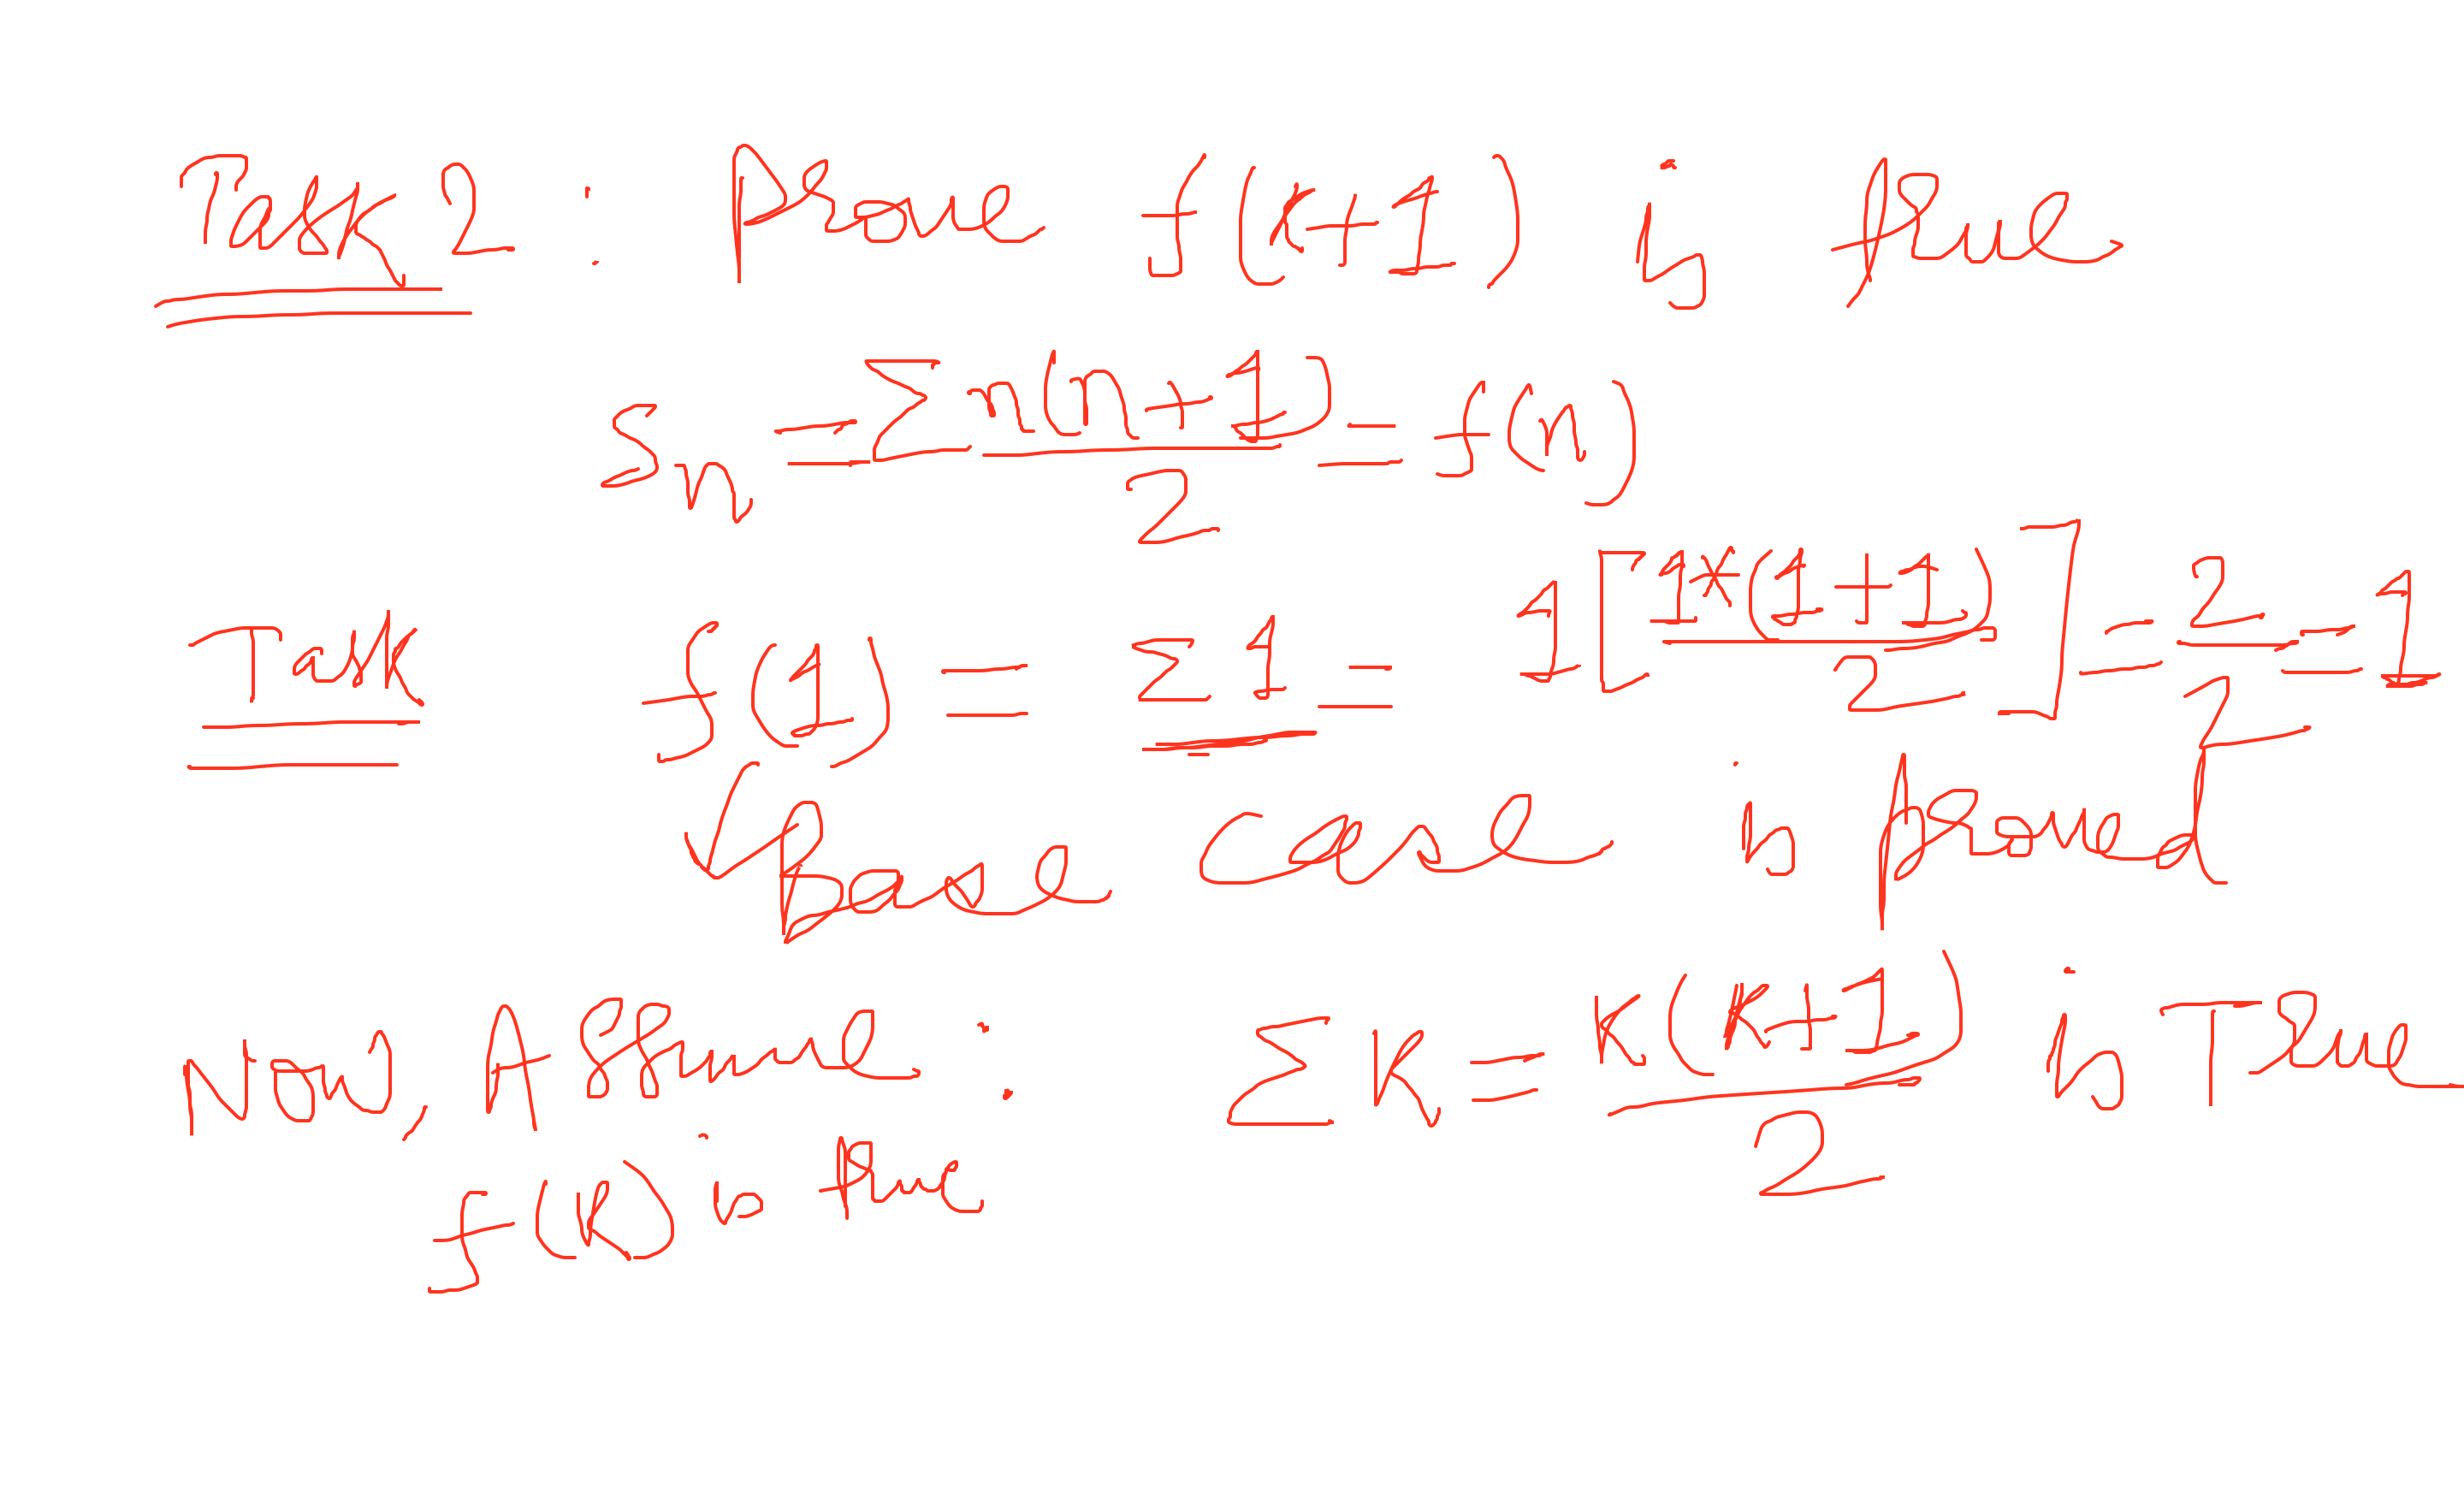 Task 2 : Prove f(k+1) is true
Sn = Σ n(n+1)/2 = f(n)
Task f(1) = Σ1 = 1 [1×(1+1)/2] = 2/2 = 1
✓ base case is proved
Now, Assume : Σ K = K(K+1)/2 is True
f(k) is true